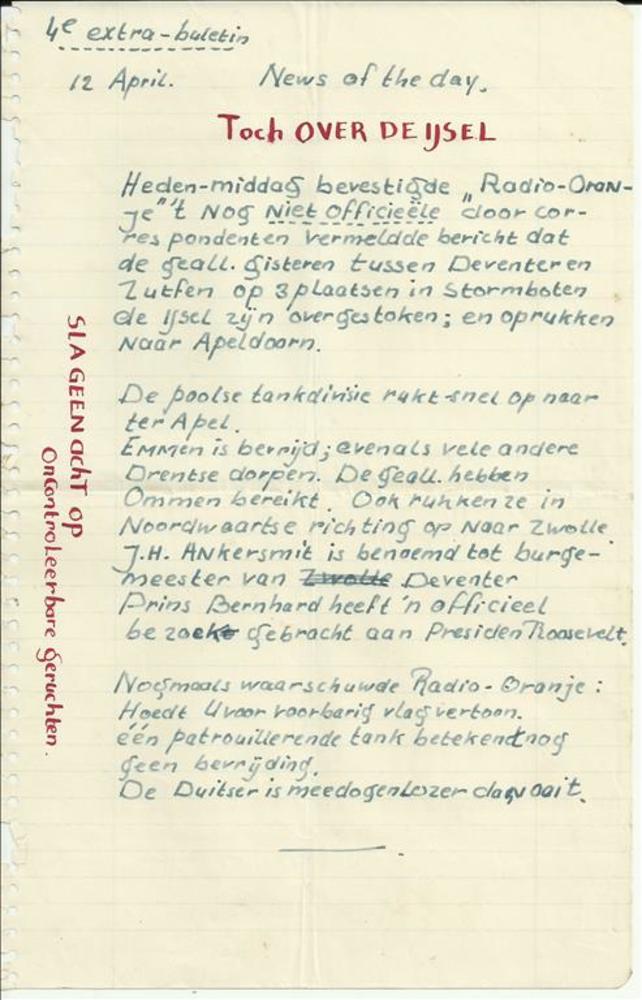 4e extra-buletin
12 April. News of the day.
Toch OVER DE IJSEL
Heden-middag bevestigde „Radio-Oran-
je" 't Nog Niet Officieële door cor-
respondenten vermeldde bericht dat
de geall. gisteren tussen Deventer en
Zutfen op 3 plaatsen in stormboten
de IJsel zijn overgestoken; en oprukken
naar Apeldoorn.
De poolse tankdivisie rukt snel op naar
ter Apel.
Emmen is bevrijd; evenals vele andere
Drentse dorpen. De geall. hebben
Ommen bereikt. Ook rukken ze in
Noordwaartse richting op naar Zwolle
J.H. Ankersmit is benoemd tot burge-
meester van Zwolle Deventer
Prins Bernhard heeft 'n officieel
bezoek gebracht aan President Roosevelt.
Nogmaals waarschuwde Radio-Oranje:
Hoedt U voor voorbarig vlagvertoon.
één patrouillerende tank betekent nog
geen bevrijding.
De Duitser is meedogenlozer dan ooit.
SLA GEEN ACHT OP
OnControleerbare geruchten.